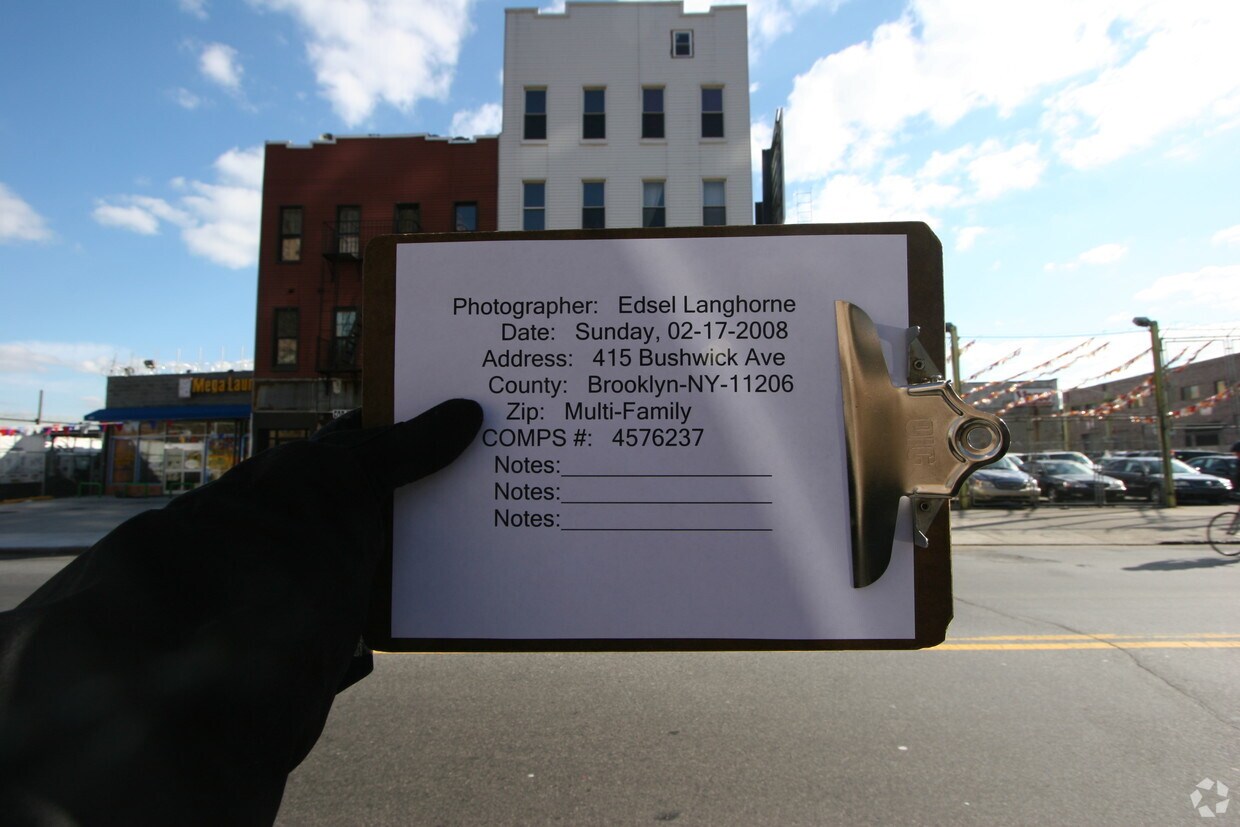 Mega Lau
Photographer: Edsel Langhorne
Date: Sunday, 02-17-2008
Address: 415 Bushwick Ave
County: Brooklyn-NY-11206
Zip: Multi-Family
COMPS #: 4576237
Notes:_________________
Notes:_________________
Notes:_________________